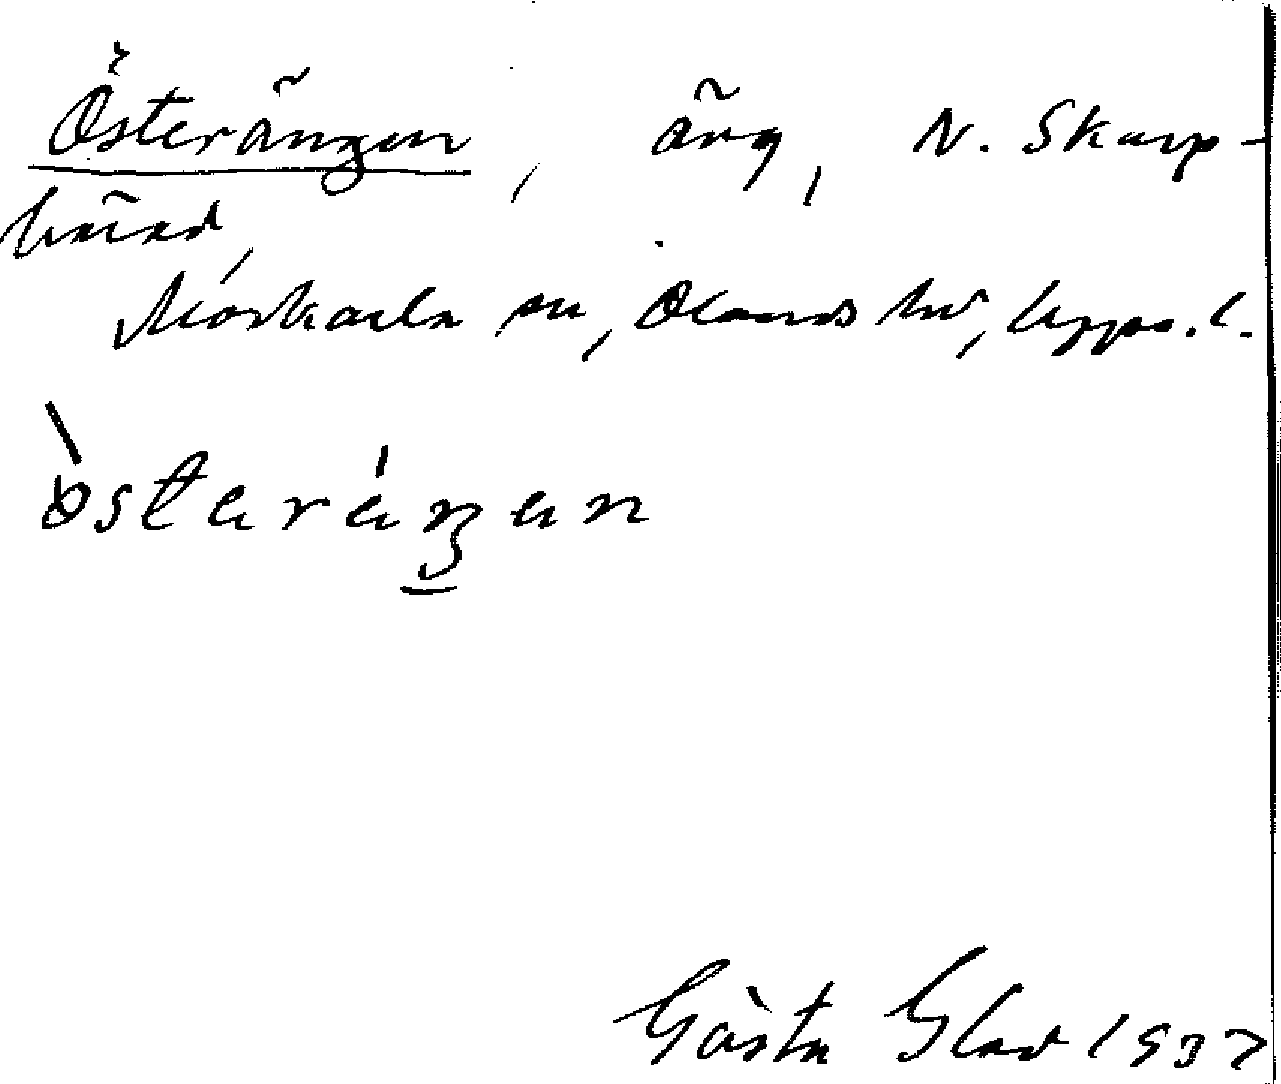 Österängen, äng, N. Skarp-
härad,
Morkarla sn, Olands hd, Upps. l.
östəräŋən
Gösta Glad 1937